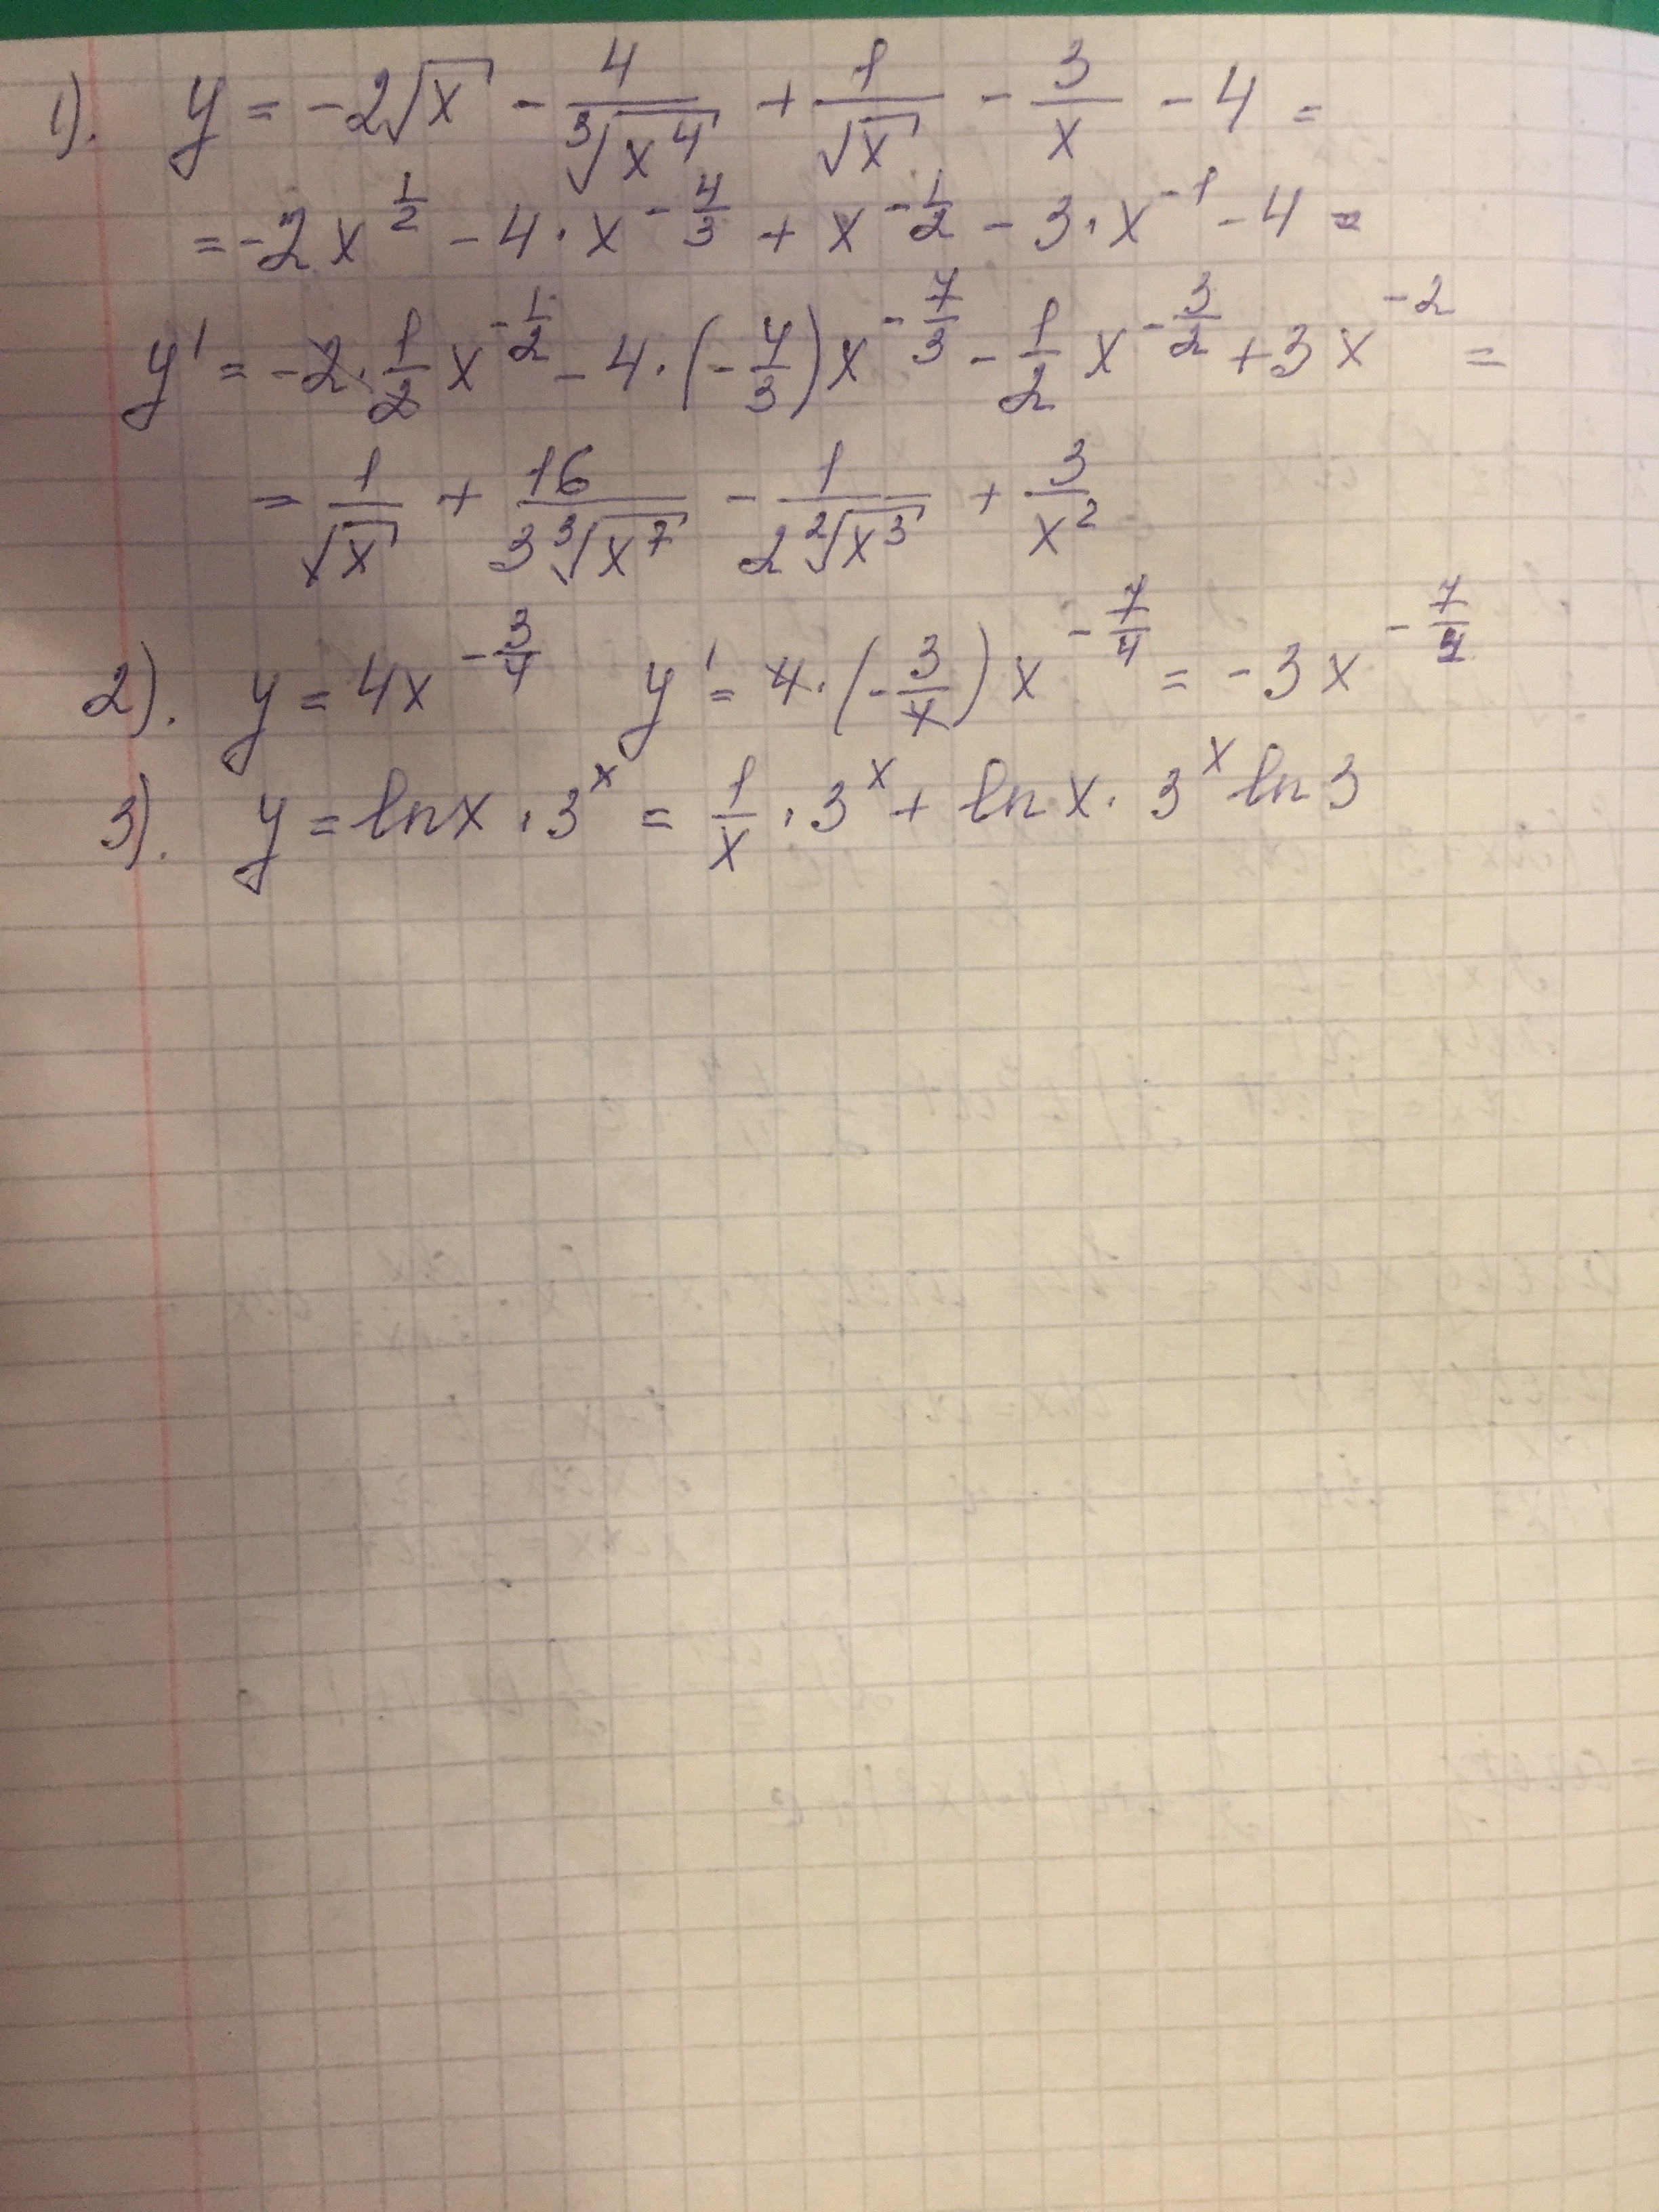 1). y = -2√x - 4/∛(x⁴) + 1/√x - 3/x - 4 =
= -2x^(1/2) - 4·x^(-4/3) + x^(-1/2) - 3·x^(-1) - 4 =
y' = -2·1/2 x^(-1/2) - 4·(-4/3)x^(-7/3) - 1/2 x^(-3/2) + 3x^(-2) =
= 1/√x + 16/(3∛(x⁷)) - 1/(2 ²√(x³)) + 3/x²
2). y = 4x^(-3/4) y' = 4·(-3/4)x^(-7/4) = -3x^(-7/4)
3). y = lnx·3^x = 1/x·3^x + lnx·3^x ln3